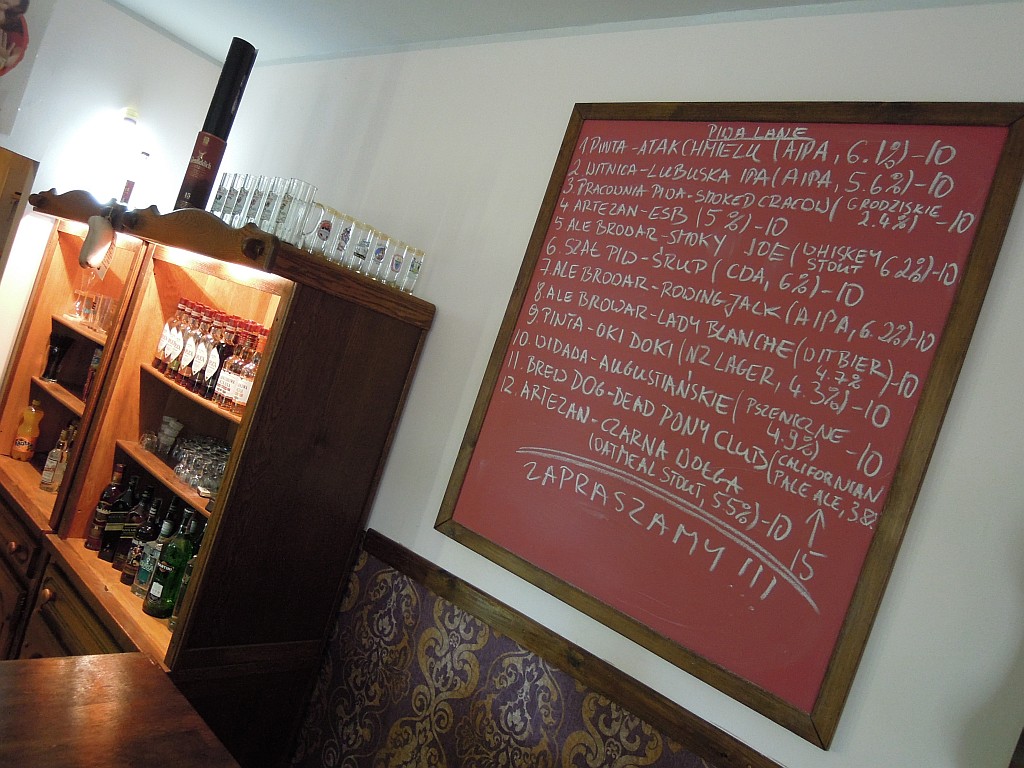 PIWA LANE
1 PINTA - ATAK CHMIELU (AIPA, 6.1%) - 10
2. WITNICA - LUBUSKA IPA (AIPA, 5.6%) - 10
3. PRACOWNIA PIWA - SMOKED CRACOW (GRODZISKIE 2.4%) - 10
4 ARTEZAN - ESB (5%) - 10
5 ALE BROWAR - SMOKY JOE (WHISKEY STOUT 6.2%) - 10
6. SZAŁ PIW - ŚRUP (CDA, 6%) - 10
7. ALE BROWAR - ROWING JACK (AIPA, 6.2%) - 10
8. ALE BROWAR - LADY BLANCHE (WITBIER) 4.7% - 10
9. PINTA - OKI DOKI (NZ LAGER, 4.3%) - 10
10. WIDAWA - AUGUSTIAŃSKIE (PSZENICZNE 4.9%) - 10
11. BREW DOG - DEAD PONY CLUB (CALIFORNIAN PALE ALE, 3.8%
12. ARTEZAN - CZARNA WOŁGA
(OATMEAL STOUT, 5.5%) - 10
15
ZAPRASZAMY !!!